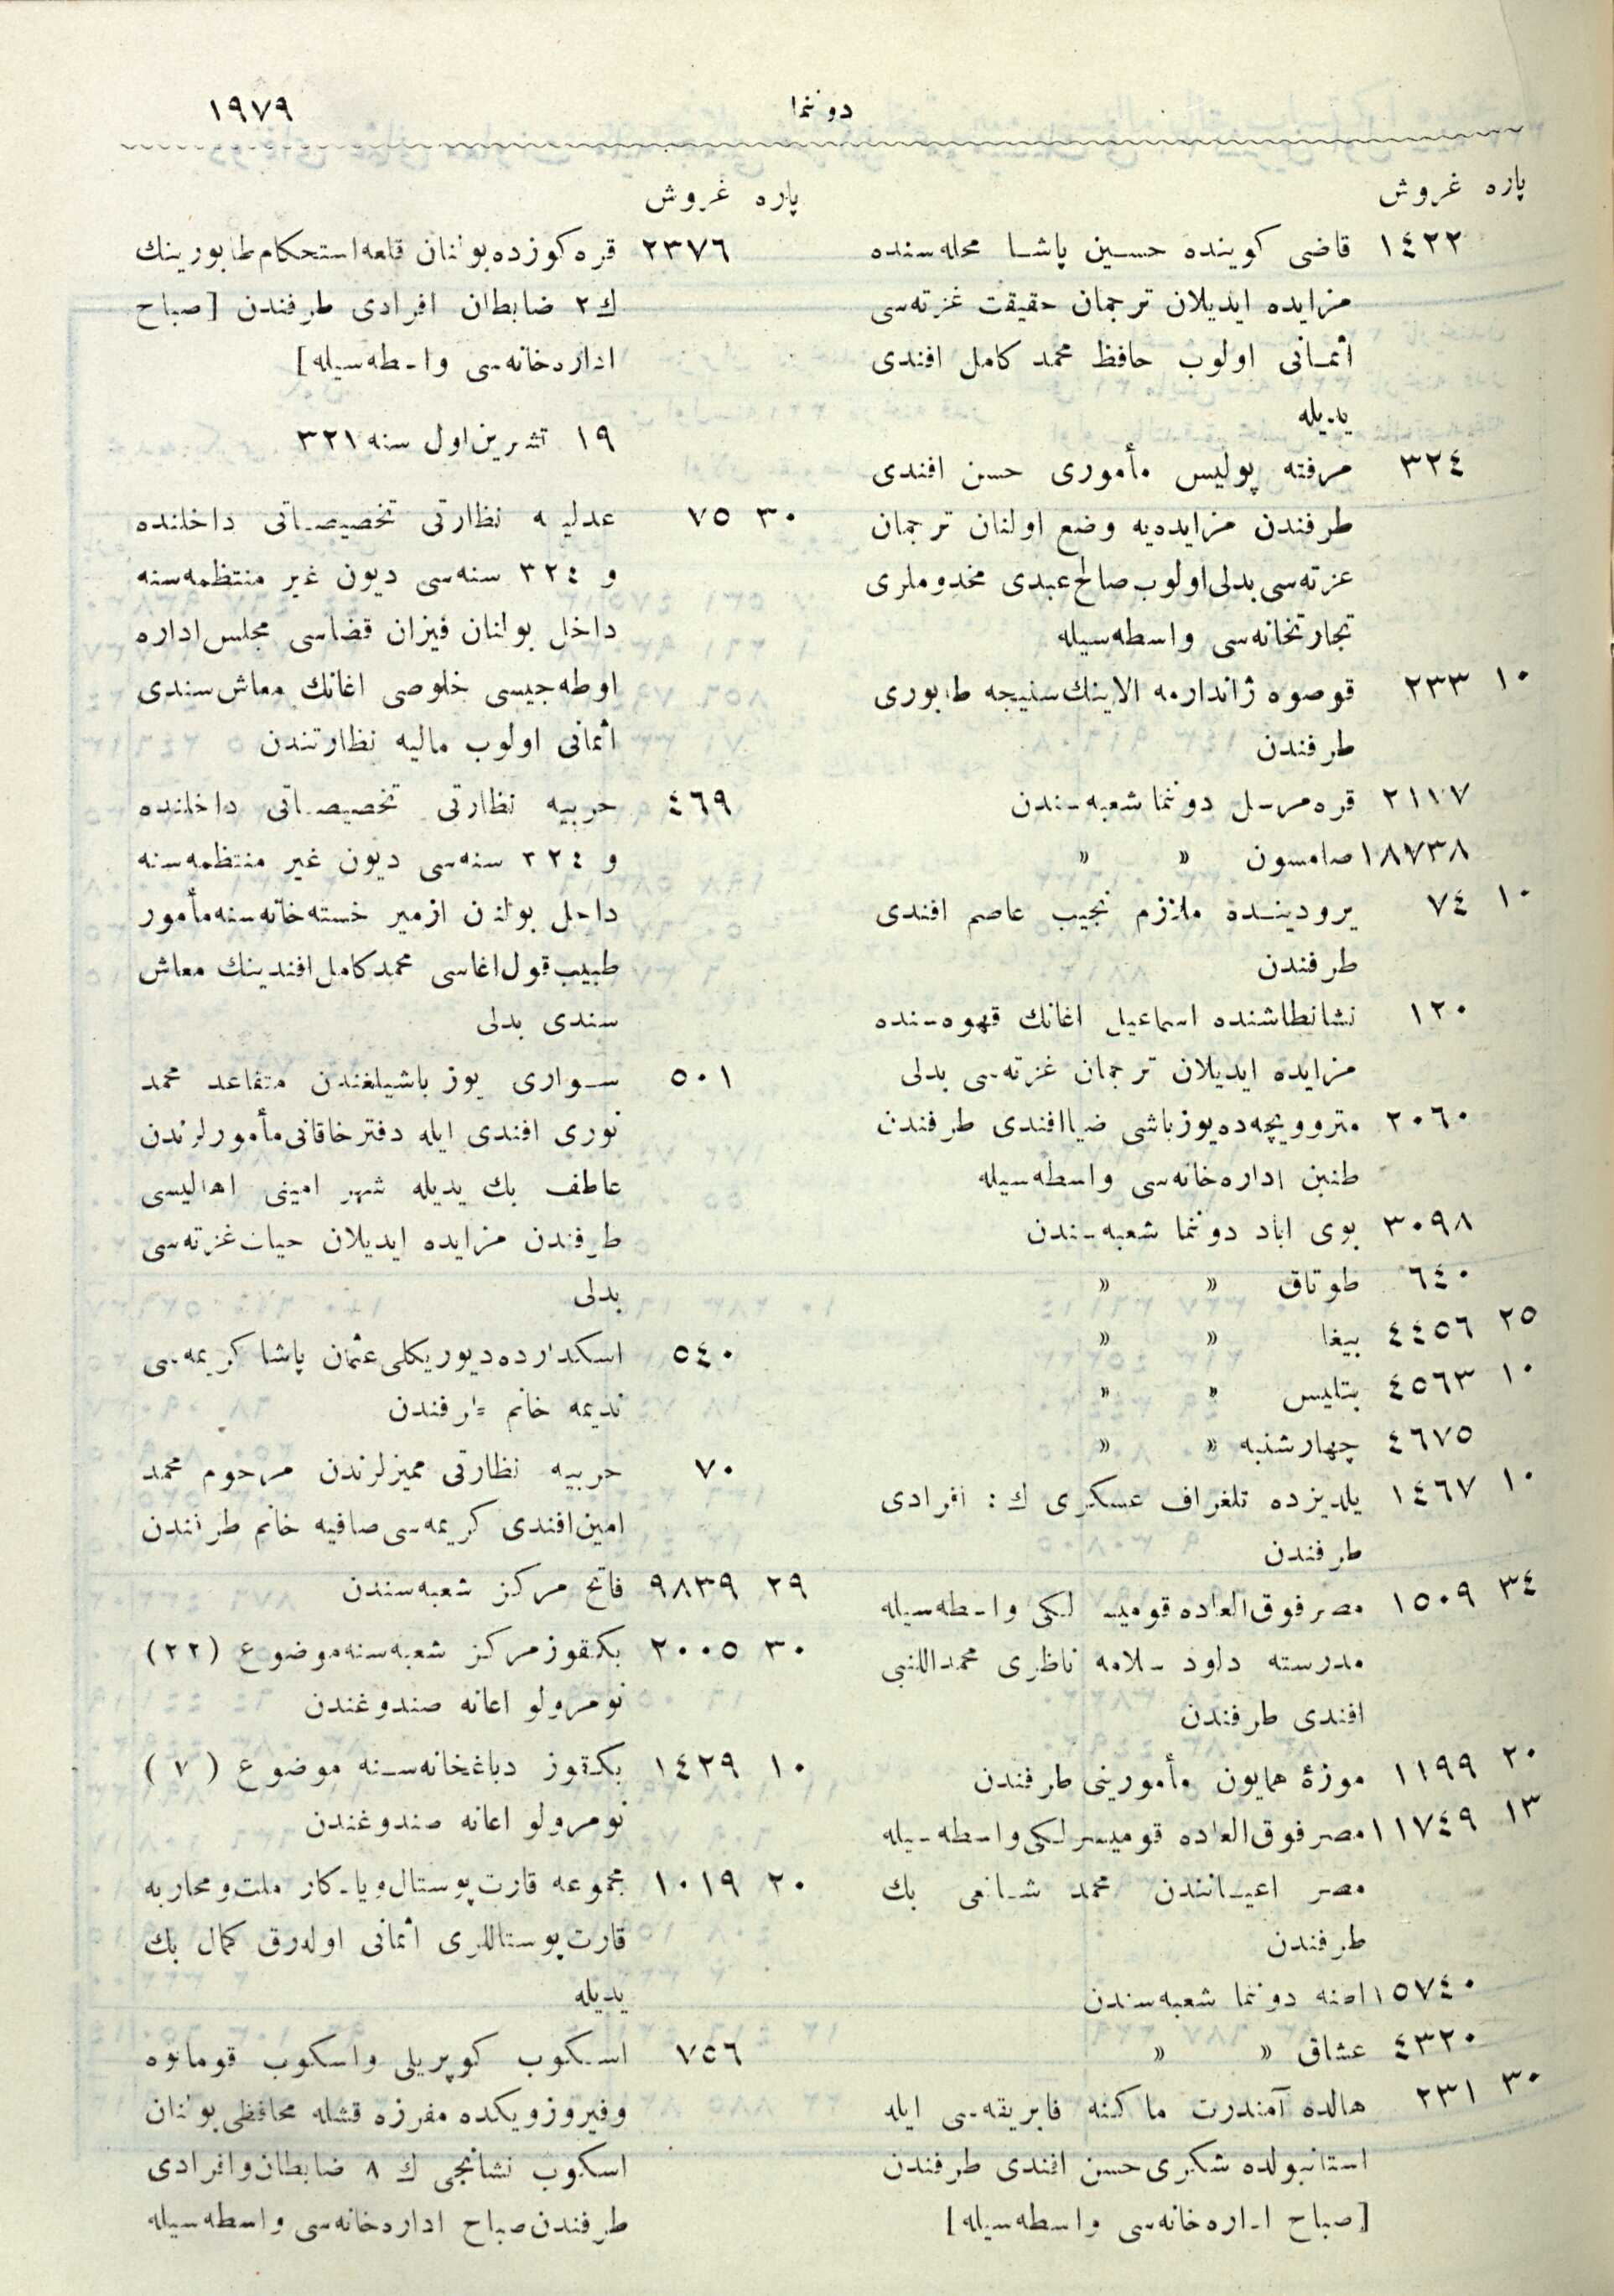 دونما
١٩٧٩
پاره غروش
١٤٢٢ قاضی كوينده حسين پاشا محله‌سنده
مزايده ايديلان ترجمان حقيقت غزته‌سی
أثمانی اولوب حافظ محمد كامل افندی
يديله
٣٢٤ مرفته پوليس مأموری حسن افندی
طرفندن مزايده‌يه وضع اولنان ترجمان
غزته‌سی بدلی اولوب صالح عبدی مخدوملری
تجارتخانه‌سی واسطه‌سيله
١٠ ٢٣٣ قوصوه ژاندارمه الاينك سنيجه طابوری
طرفندن
٢١١٧ قره‌مرسل دونما شعبه‌سندن
١٨٧٣٨ صامسون » »
١٠ ٧٤ يرودينده ملازم نجيب عاصم افندی
طرفندن
١٢٠ نشانطاشنده اسماعيل اغانك قهوه‌سنده
مزايده ايديلان ترجمان غزته‌سی بدلی
٢٠٦٠ متروويچه‌ده يوزباشی ضيا افندی طرفندن
طنين اداره‌خانه‌سی واسطه‌سيله
٣٠٩٨ بوی اباد دونما شعبه‌سندن
٦٤٠ طوتاق » »
٢٥ ٤٤٥٦ بيغا » »
١٠ ٤٥٦٣ بتليس » »
٤٦٧٥ چهارشنبه » »
١٠ ١٤٦٧ يلديزده تلغراف عسكری ك : افرادی
طرفندن
٣٤ ١٥٠٩ مصر فوق العاده قوميسرلكی واسطه‌سيله
مدرسته داود سلامه ناظری محمد اللنبی
افندی طرفندن
٢٠ ١١٩٩ موزۀ همايون مأمورينی طرفندن
١٣ ١١٧٤٩ مصر فوق العاده قوميسرلكی واسطه‌سيله
مصر اعيانندن محمد شافعی بك
طرفندن
١٥٧٤٠ ادنه دونما شعبه‌سندن
٤٣٢٠ عشاق » »
٣٠ ٢٣١ هالده آمندرت ماكنه فابريقه‌سی ايله
استانبولده شكری حسن افندی طرفندن
[صباح اداره‌خانه‌سی واسطه‌سيله]
پاره غروش
٢٣٧٦ قره‌كوزده بولنان قلعه استحكام طابورينك
ك ٢ ضابطان افرادی طرفندن [صباح
اداره‌خانه‌سی واسطه‌سيله]
١٩ تشرين اول سنه ٣٢١
٣٠ ٧٥ عدليه نظارتی تخصيصاتی داخلنده
و ٣٢٤ سنه‌سی ديون غير منتظمه‌سنه
داخل بولنان فيزان قضاسی مجلس اداره
اوطه‌جيسی خلوصی اغانك معاش سندی
أثمانی اولوب ماليه نظارتندن
٤٦٩ حربيه نظارتی تخصيصاتی داخلنده
و ٣٢٤ سنه‌سی ديون غير منتظمه‌سنه
داخل بولنان ازمير خسته‌خانه‌سنه مأمور
طبيب قول اغاسی محمد كامل افندينك معاش
سندی بدلی
٥٠١ سواری يوزباشيلغندن متقاعد محمد
نوری افندی ايله دفتر خاقانی مأمورلرندن
عاطف بك يديله شهر امينی اهاليسی
طرفندن مزايده ايديلان حيات غزته‌سی
بدلی
٥٤٠ اسكدارده ديوريكلی عثمان پاشا كريمه‌سی
نديمه خانم طرفندن
٧٠ حربيه نظارتی مميزلرندن مرحوم محمد
امين افندی كريمه‌سی صافيه خانم طرفندن
٢٩ ٩٨٣٩ فاتح مركز شعبه‌سندن
٣٠ ٢٠٠٥ بكقوز مركز شعبه‌سنه موضوع (٢٢)
نومرولو اعانه صندوغندن
١٠ ١٤٢٩ بكقوز دباغخانه‌سنه موضوع (٧)
نومرولو اعانه صندوغندن
٢٠ ١٠١٩ مجموعه قارت پوستال و يادكار ملت و محاربه
قارت پوستاللری أثمانی اوله‌رق كمال بك
يديله
٧٥٦ اسكوب كوپريلی و اسكوب قومانوه
و فيروزويكده مفرزه قشله محافظی بولنان
اسكوب نشانجی ك ٨ ضابطان و افرادی
طرفندن صباح اداره‌خانه‌سی واسطه‌سيله